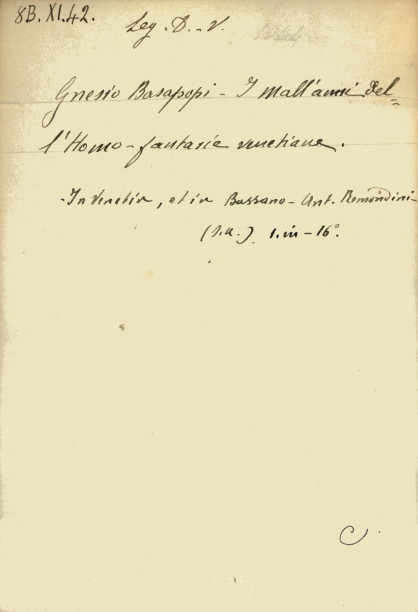 8B. XI. 42.
Leg. D. V.
Gnesio Basapopi - I mall'anni del=
l'Homo - fantasie venetiane.
- In Venetia, et in Bassano - Ant. Remondini -
(s.a.) 1. in - 16º.
C.